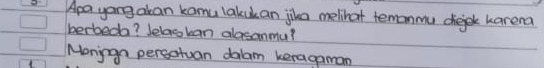 Apa yang akan kamu lakukan jika melihat temanmu diejek karena
berbeda? Jelaskan alasanmu!
Menjaga persatuan dalam keragaman